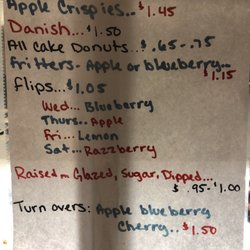 Apple Crispies.. $1.45
Danish... $1.50
All Cake Donuts.. $.65-.75
Fritters- Apple or blueberry...
$1.15
Flips... $1.05
Wed... Blueberry
Thurs.. Apple
Fri... Lemon
Sat... Razzberry
Raised — Glazed, Sugar, Dipped...
$.95-$1.00
Turn overs: Apple blueberry
Cherry.. $1.50